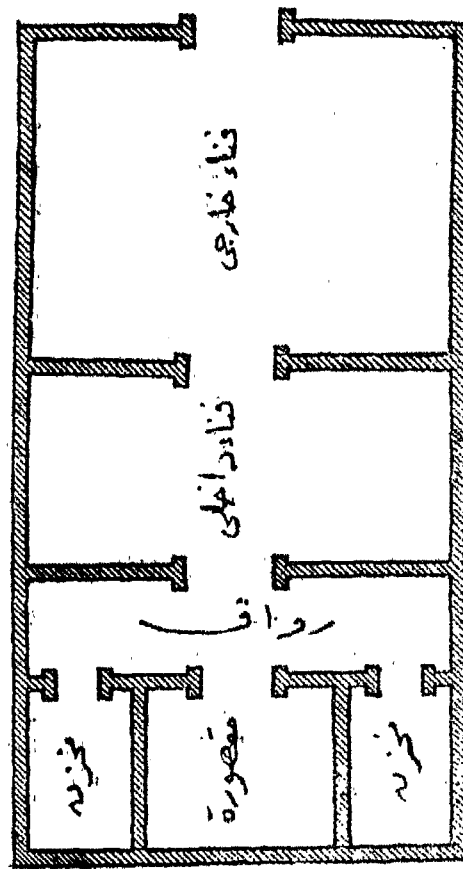 فناء خارجي
فناء داخلي
رواق
مخزن
مقصورة
مخزن